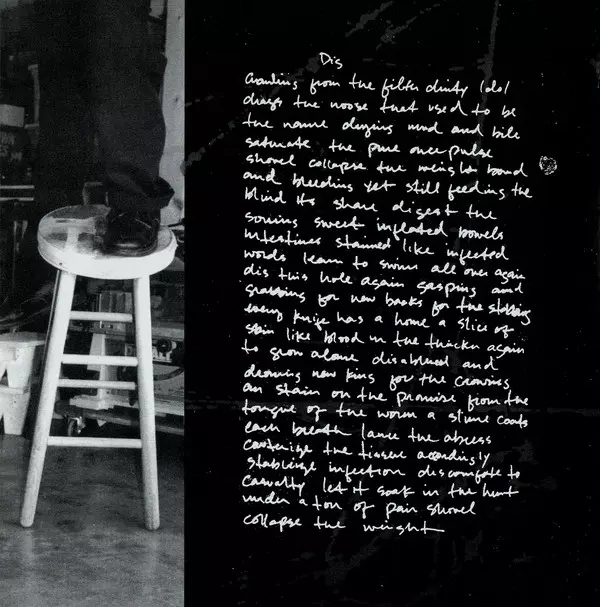 Dis
Crawling from the filth dirty Idol
drags the noose that used to be
the name drying mud and bile
saturate the pure over pulse
shovel collapse the weight bound
and bleeding yet still feeding the
blind its share digest the
souring sweet inflated bowels
Intestines stained like infected
words learn to swim all over again
dis this hole again gasping and
grabbing for new backs for the stabbing
every knife has a home a slice of
skin like blood in the thicker again
to grow alone disabused and
new king for the craving
an stain on the promise from the
tongue of the worm a slime coats
each breath lance the abscess
cauterize the tissue accordingly
stabilize infection discomfort to
casualty let it soak in the hunt
under a ton of pain shovel
collapse the weight